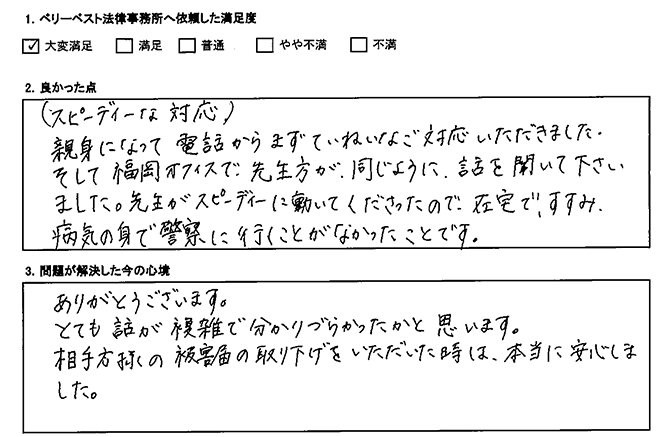 1. ベリーベスト法律事務所へ依頼した満足度
☑ 大変満足 □ 満足 □ 普通 □ やや不満 □ 不満
2. 良かった点
(スピーディーな対応)
親身になって電話からまずていねいなご対応いただきました.
そして福岡オフィスで、先生方が、同じように、話を聞いて下さい
ました。先生がスピーディーに動いてくださったので、在宅で、すすみ、
病気の身で警察に行くことがなかったことです。
3. 問題が解決した今の心境
ありがとうございます。
とても話が複雑で分かりづらかったかと思います。
相手方様の被害届の取り下げをいただいた時は、本当に安心しま
した。